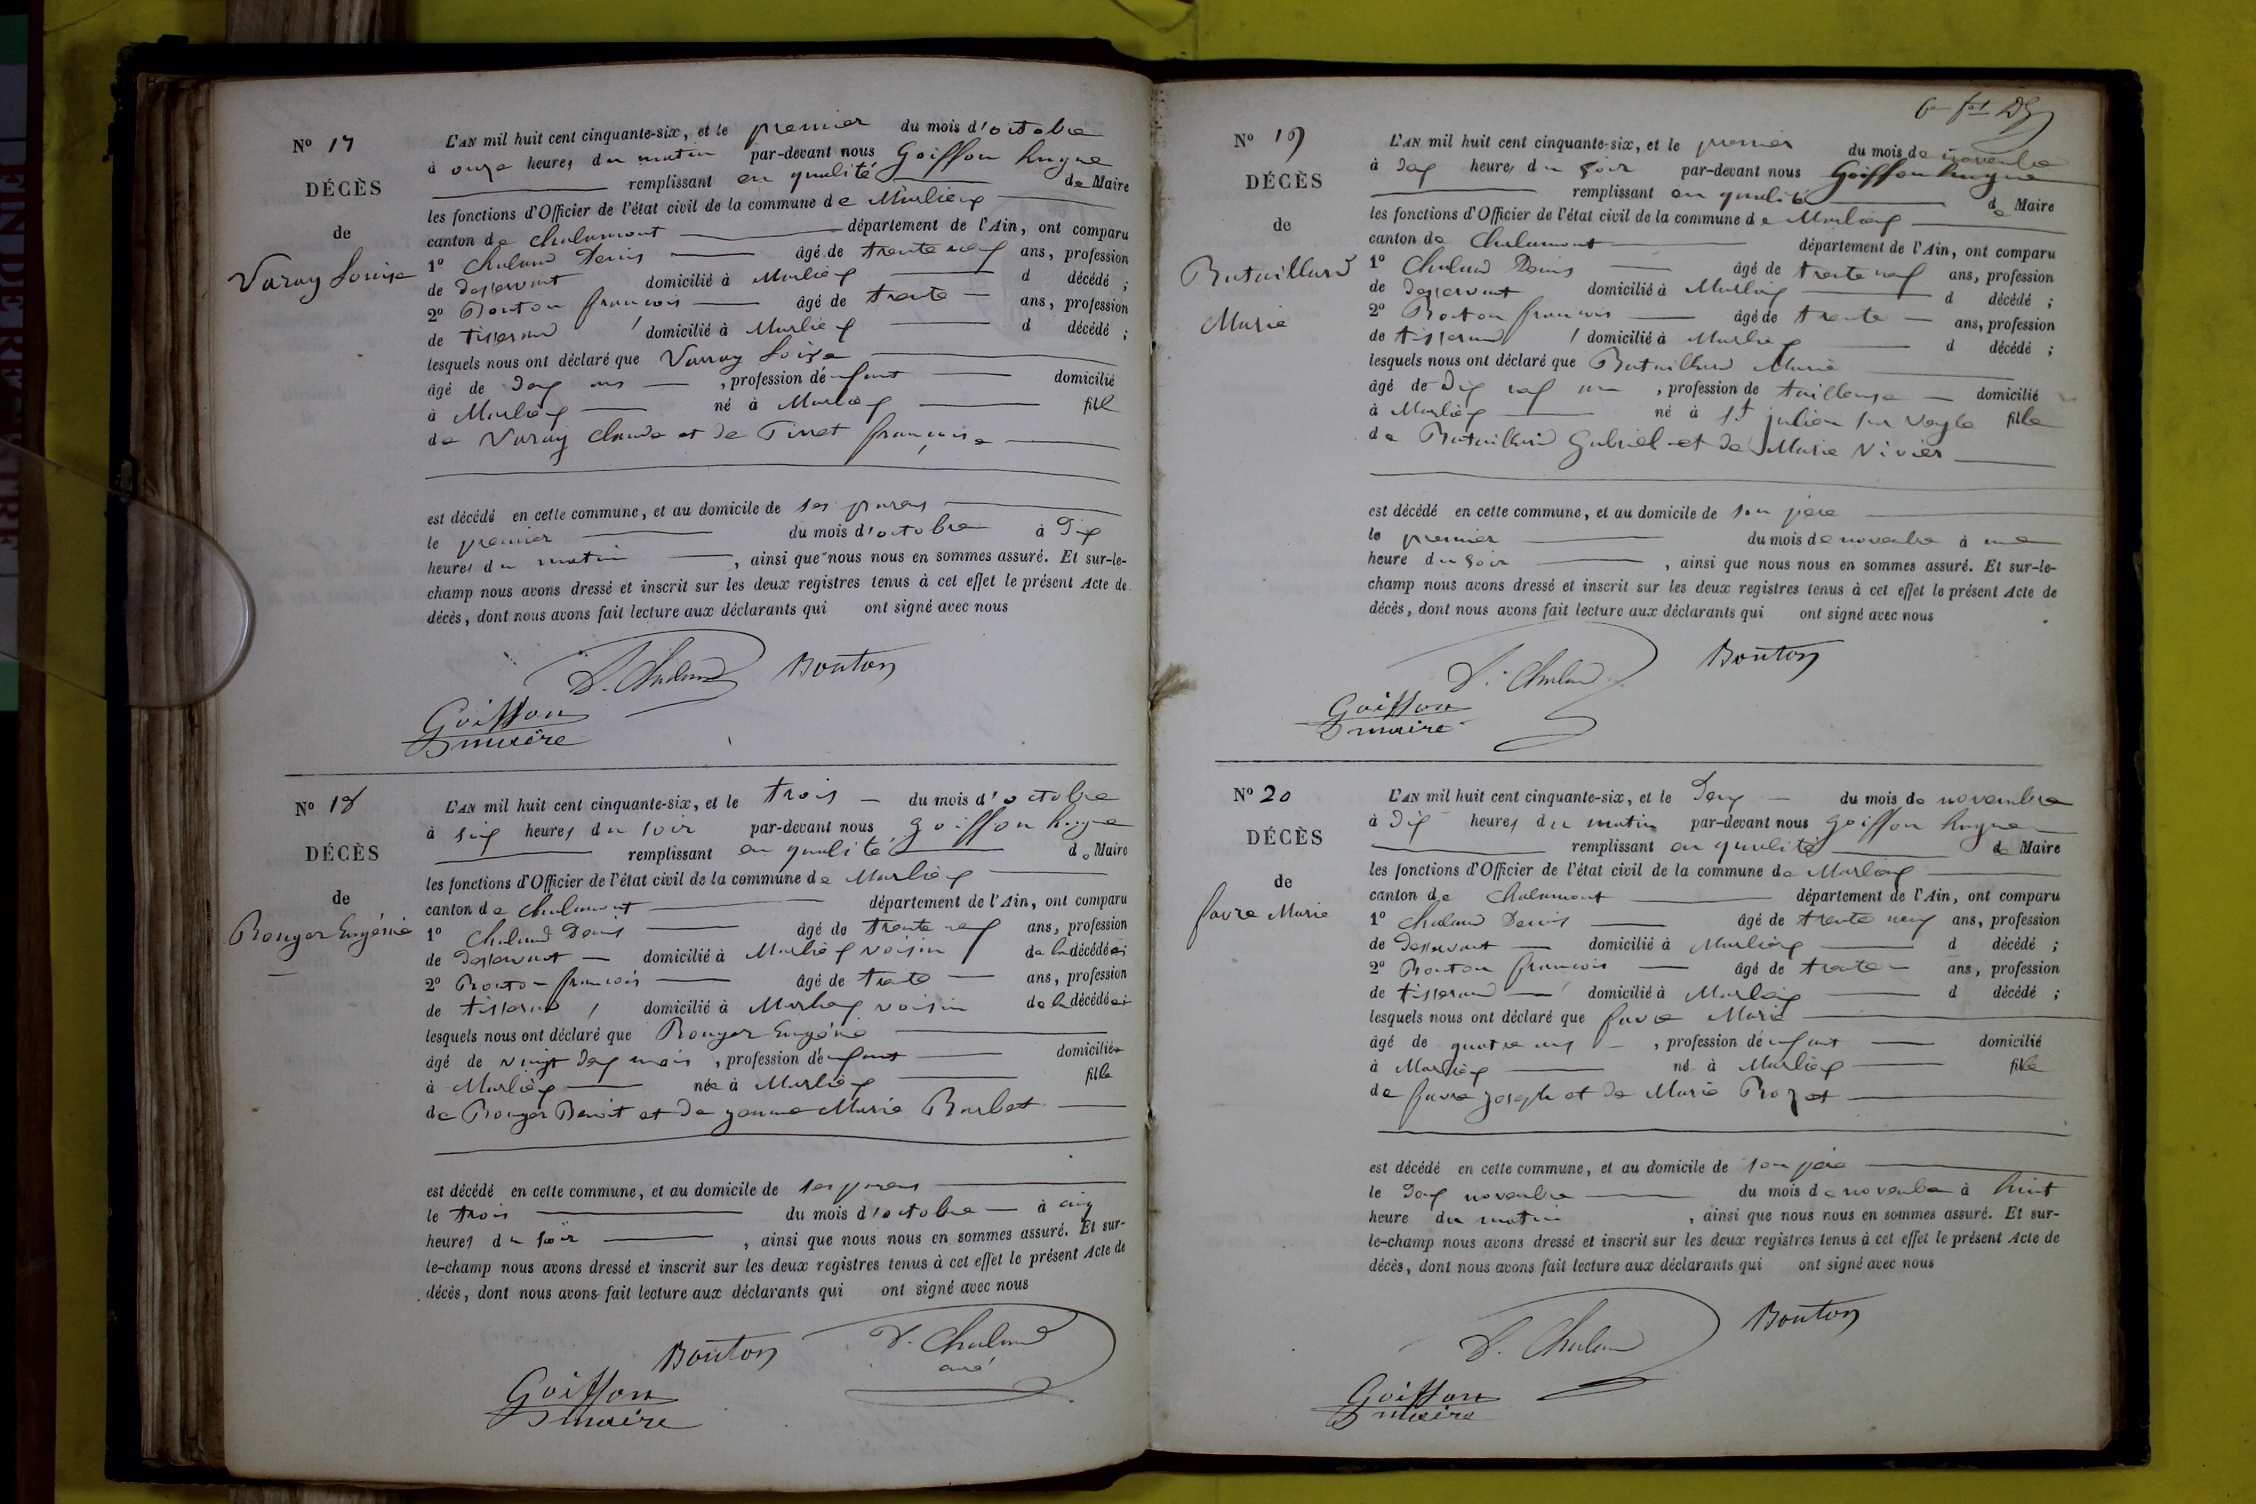 N° 17
DÉCÈS
de
Varay Louise
L'AN mil huit cent cinquante-six, et le premier du mois d'octobre
à onze heures du matin par-devant nous Goiffon hugue
remplissant en qualité de Maire
les fonctions d'Officier de l'état civil de la commune de Marlieux
canton de Chalamont département de l'Ain, ont comparu
1° Chaland Denis âgé de trente neuf ans, profession
de desservant domicilié à Marlieux d décédé ;
2° Bouton françois âgé de trente ans, profession
de tisserand domicilié à Marlieux d décédé ;
lesquels nous ont déclaré que Varray Loise
âgé de deux ans , profession d'enfant domicilié
à Marlieux né à Marlieux fille
de Varay Claude et de Tisset françoise
est décédé en cette commune, et au domicile de ses parens
le premier du mois d'octobre à dix
heures du matin , ainsi que nous nous en sommes assuré. Et sur-le-
champ nous avons dressé et inscrit sur les deux registres tenus à cet effet le présent Acte de
décès, dont nous avons fait lecture aux déclarants qui ont signé avec nous
D. Chaland Bouton
Goiffon
maire
N° 18
DÉCÈS
de
Rouger Eugénie
L'AN mil huit cent cinquante-six, et le trois du mois d'octobre
à six heures du soir par-devant nous goiffon hugue
remplissant en qualité de Maire
les fonctions d'Officier de l'état civil de la commune de Marlieux
canton de Chalamont département de l'Ain, ont comparu
1° Chaland Denis âgé de trente neuf ans, profession
de desservant domicilié à Marlieux voisin de la décédée
2° Bouton françois âgé de trente ans, profession
de tisserand domicilié à Marlieux voisin de la décédée
lesquels nous ont déclaré que Rouger Eugénie
âgé de vingt deux mois , profession d'enfant domiciliée
à Marlieux née à Marlieux fille
de Rouger Benoit et de jeanne Marie Barbet
est décédé en cette commune, et au domicile de ses parens
le trois du mois d'octobre à cinq
heures du soir , ainsi que nous nous en sommes assuré. Et sur-
le-champ nous avons dressé et inscrit sur les deux registres tenus à cet effet le présent Acte de
décès, dont nous avons fait lecture aux déclarants qui ont signé avec nous
Bouton D. Chaland
curé
Goiffon
maire
N° 19
DÉCÈS
de
Bataillard
Marie
L'AN mil huit cent cinquante-six, et le premier du mois de novembre
à deux heures du soir par-devant nous Goiffon hugue
remplissant en qualité de Maire
les fonctions d'Officier de l'état civil de la commune de Marlieux
canton de Chalamont département de l'Ain, ont comparu
1° Chaland Denis âgé de trente neuf ans, profession
de desservant domicilié à Marlieux d décédé ;
2° Bouton françois âgé de trente ans, profession
de tisserand domicilié à Marlieux d décédé ;
lesquels nous ont déclaré que Bataillard Marie
âgé de dix neuf ans , profession de tailleuse domicilié
à Marlieux né à St julien sur Veyle fille
de Bataillard Gabriel et de Marie Vivier
est décédé en cette commune, et au domicile de son père
le premier du mois de novembre à une
heure du soir , ainsi que nous nous en sommes assuré. Et sur-le-
champ nous avons dressé et inscrit sur les deux registres tenus à cet effet le présent Acte de
décès, dont nous avons fait lecture aux déclarants qui ont signé avec nous
D. Chaland Bouton
Goiffon
maire
N° 20
DÉCÈS
de
favre Marie
L'AN mil huit cent cinquante-six, et le deux du mois de novembre
à dix heures du matin par-devant nous goiffon hugue
remplissant en qualité de Maire
les fonctions d'Officier de l'état civil de la commune de Marlieux
canton de Chalamont département de l'Ain, ont comparu
1° Chaland Denis âgé de trente neuf ans, profession
de desservant domicilié à Marlieux d décédé ;
2° Bouton françois âgé de trente ans, profession
de tisserand domicilié à Marlieux d décédé ;
lesquels nous ont déclaré que favre Marie
âgé de quatre ans , profession d'enfant domicilié
à Marlieux né à Marlieux fille
de favre joseph et de Marie Rozet
est décédé en cette commune, et au domicile de son père
le deux novembre du mois de novembre à huit
heure du matin , ainsi que nous nous en sommes assuré. Et sur-
le-champ nous avons dressé et inscrit sur les deux registres tenus à cet effet le présent Acte de
décès, dont nous avons fait lecture aux déclarants qui ont signé avec nous
D. Chaland Bouton
Goiffon
maire